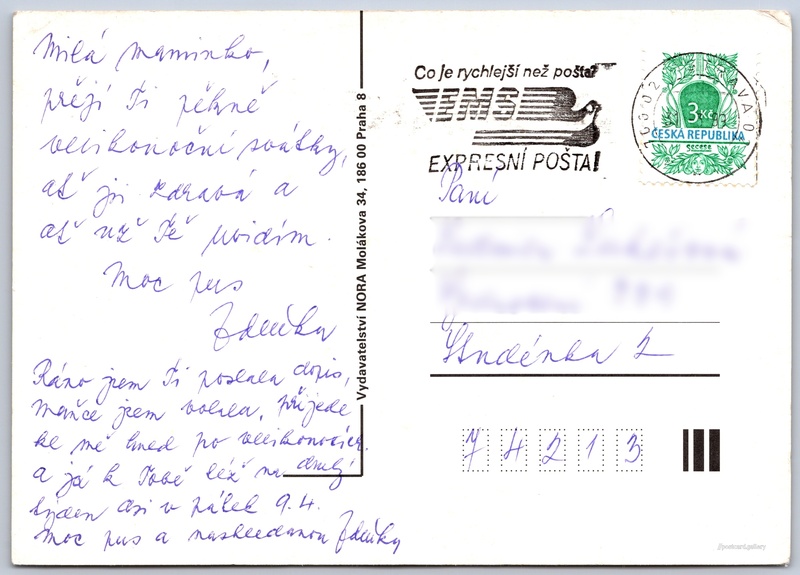 Milá maminko,
přeji Ti pěkné
velikonoční svátky,
ať jsi zdravá a
ať už Tě uvidím.
Moc pus
Zdeňka
Ráno jsem Ti poslala dopis,
Mančе jsem volala, přijede
ke mě hned po velikonocích.
a já k Tobě též na druhý
týden asi v pátek 9.4.
Moc pus a nashledanou Zdeňka
Vydavatelství NORA Molákova 34, 186 00 Praha 8
Co je rychlejší než pošta?
EMS
EXPRESNÍ POŠTA!
3Kč
ČESKÁ REPUBLIKA
Paní
Studénka 2
74213
postcard.gallery